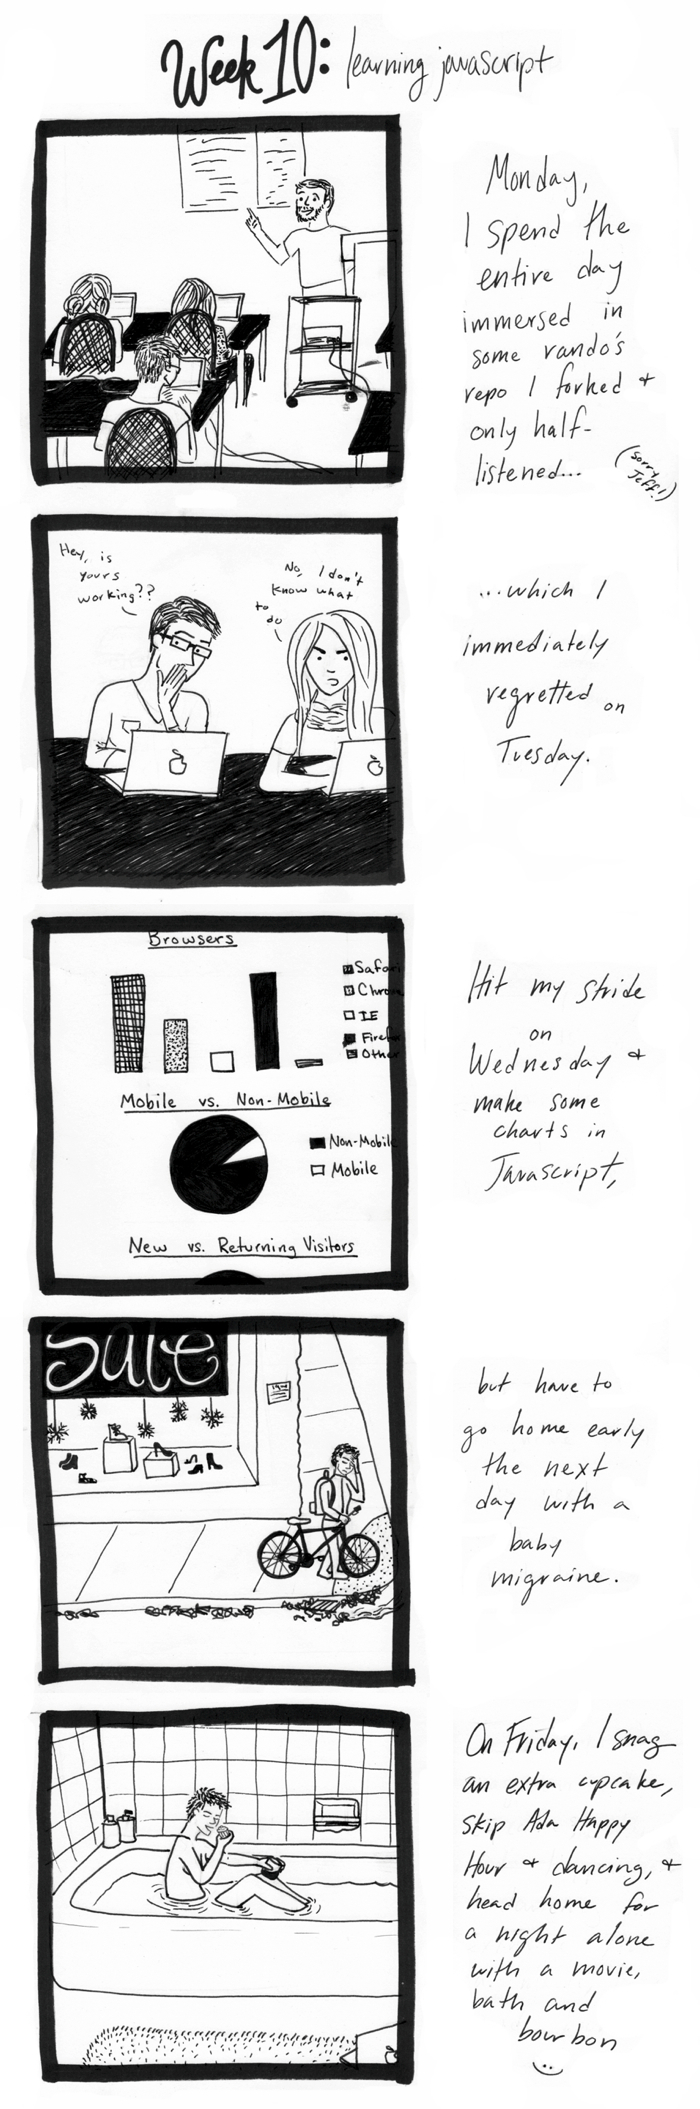 Week 10: learning javascript
Monday,
I spend the
entire day
immersed in
some rando's
repo I forked +
only half-
listened...
(sorry
Jeff!)
Hey, is
yours
working??
No, I don't
know what
to do
...which I
immediately
regretted on
Tuesday.
Browsers
Safari
Chrom
IE
Firefox
Other
Mobile vs. Non-Mobile
Non-Mobile
Mobile
New vs. Returning Visitors
Hit my stride
on
Wednesday +
make some
charts in
Javascript,
Sale
but have to
go home early
the next
day with a
baby
migraine.
On Friday, I snag
an extra cupcake,
skip Ada Happy
Hour + dancing, +
head home for
a night alone
with a movie,
bath and
bourbon